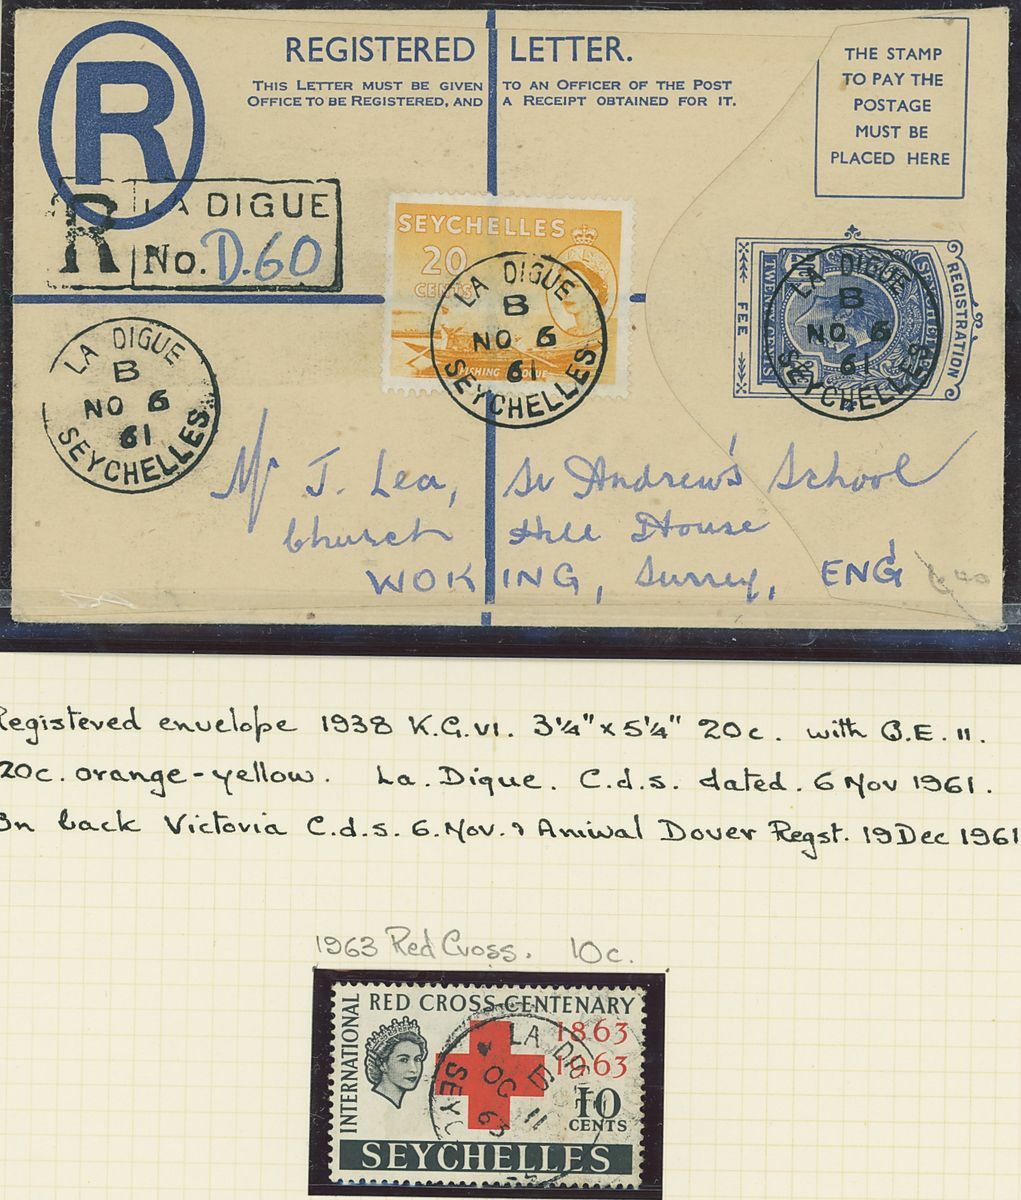 REGISTERED LETTER.
THIS LETTER MUST BE GIVEN TO AN OFFICER OF THE POST
OFFICE TO BE REGISTERED, AND A RECEIPT OBTAINED FOR IT.
THE STAMP
TO PAY THE
POSTAGE
MUST BE
PLACED HERE
R
R LA DIGUE
No. D.60
SEYCHELLES
20
CENTS
FISHING PIROGUE
LA DIGUE
B
NO 6
61
SEYCHELLES
REGISTRATION
FEE
SEYCHELLES
TWENTY CENTS
LA DIGUE
B
NO 6
61
SEYCHELLES
LA DIGUE
B
NO 6
61
SEYCHELLES
Mr J. Lea, St Andrew's School
Church Hill House
WOKING, Surrey, ENG
Registered envelope 1938 K.G.VI. 3¼" x 5¼" 20c. with Q.E.II.
20c. orange-yellow. La. Digue. C.d.s. dated. 6 Nov 1961.
On back Victoria C.d.s. 6. Nov. & Arrival Dover Regst. 19 Dec 1961
1963 Red Cross. 10c.
INTERNATIONAL RED CROSS CENTENARY
1863
1963
10
CENTS
SEYCHELLES
LA DIGUE
OC 11
63